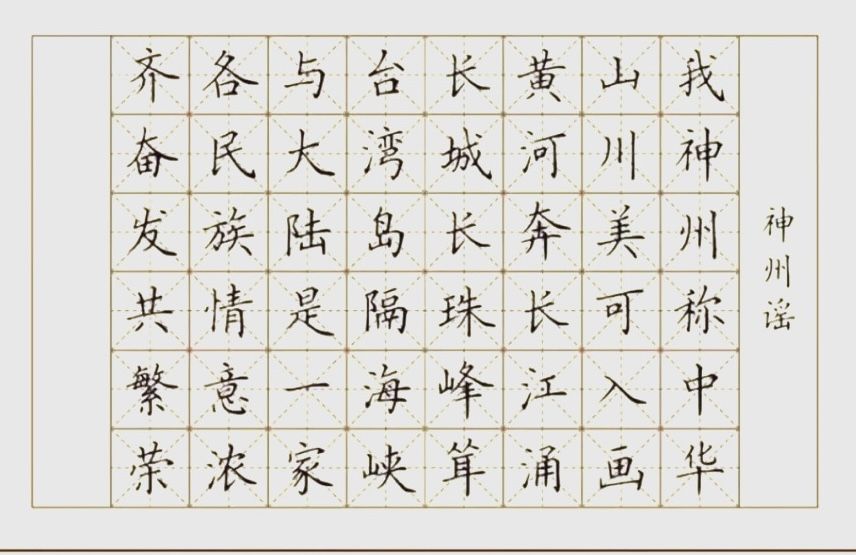 神州谣
我神州称中华
山川美可入画
黄河奔长江涌
长城长珠峰耸
台湾岛隔海峡
与大陆是一家
各民族情意浓
齐奋发共繁荣